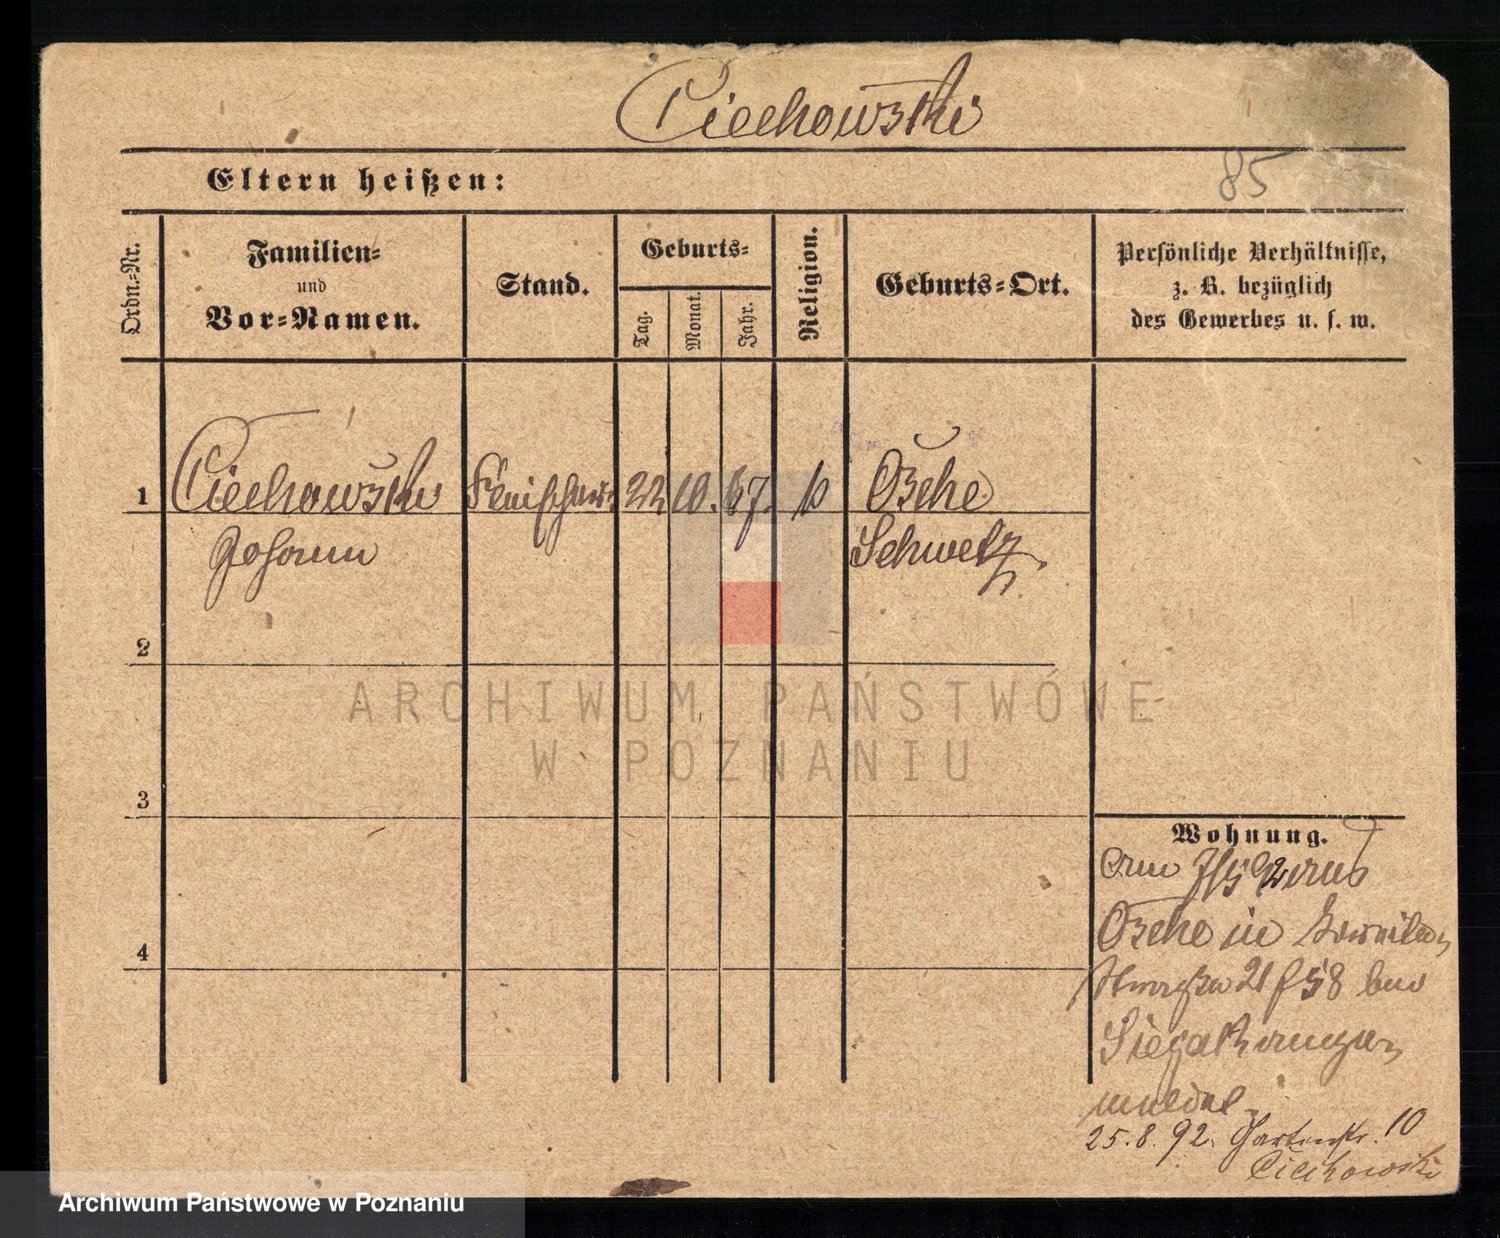 Ciechowski
85
Eltern heißen:
Ordn.=Nr.
Familien=
und
Vor=Namen.
Stand.
Geburts=
Tag.
Monat.
Jahr.
Religion.
Geburts=Ort.
Persönliche Verhältnisse,
z. B. bezüglich
des Gewerbes u. s. w.
1 Ciechowski 22 10. 67. Osche
Johann Schwetz
2
3
4
Wohnung.
Osche in
21 58
25.8.92. Gartenstr. 10
Ciechowski
ARCHIWUM PAŃSTWOWE
W POZNANIU
Archiwum Państwowe w Poznaniu